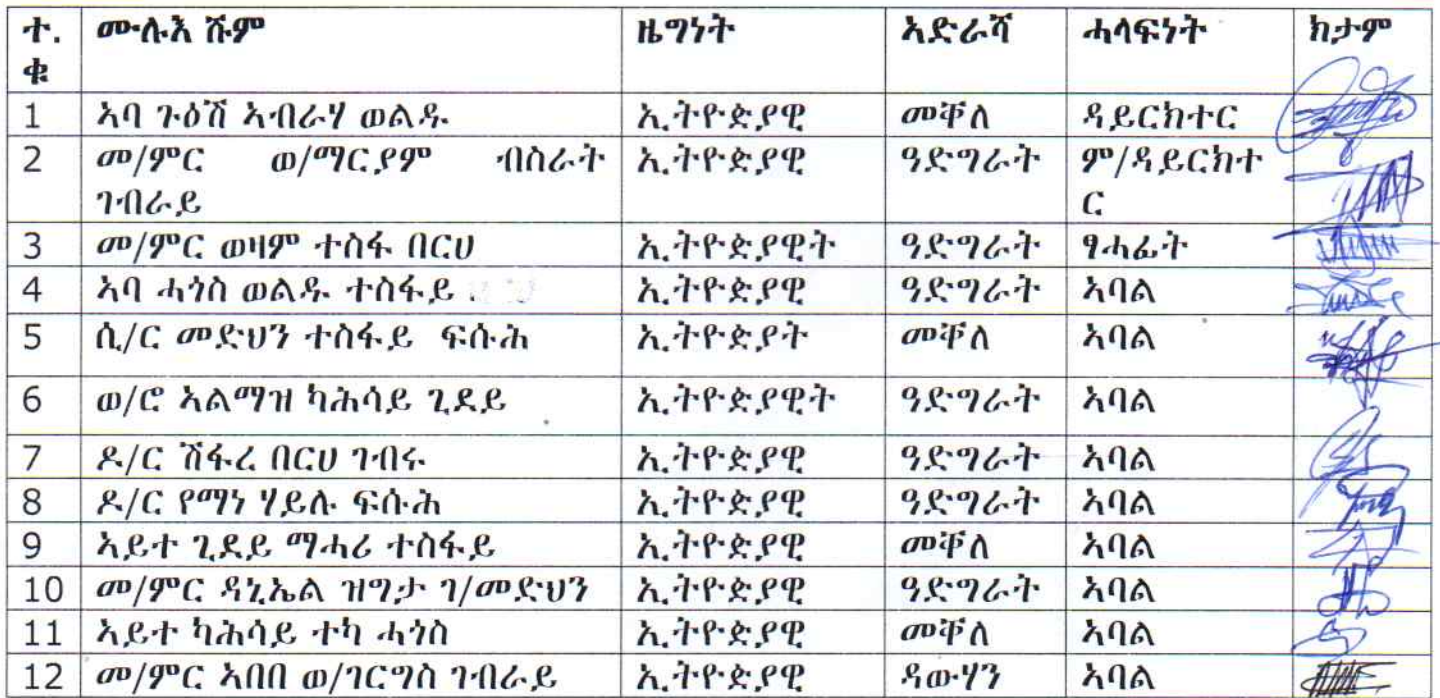 ተ. ሙሉእ ሹም ዜግነት ኣድራሻ ሓላፍነት ክታም
ቁ
1 ኣባ ጉዕሽ ኣብራሃ ወልዱ ኢትዮዽያዊ መቐለ ዳይርክተር
2 መ/ምር ወ/ማርያም ብስራት ኢትዮዽያዊ ዓድግራት ም/ዳይርክተ
ገብራይ ር
3 መ/ምር ወዛም ተስፋ በርሀ ኢትዮዽያዊት ዓድግራት ፃሓፊት
4 ኣባ ሓጎስ ወልዱ ተስፋይ ኢትዮዽያዊ ዓድግራት ኣባል
5 ሲ/ር መድህን ተስፋይ ፍሱሕ ኢትዮዽያት መቐለ ኣባል
6 ወ/ሮ ኣልማዝ ካሕሳይ ጊደይ ኢትዮዽያዊት ዓድግራት ኣባል
7 ዶ/ር ሽፋረ በርሀ ገብሩ ኢትዮዽያዊ ዓድግራት ኣባል
8 ዶ/ር የማነ ሃይሉ ፍሱሕ ኢትዮዽያዊ ዓድግራት ኣባል
9 ኣይተ ጊደይ ማሓሪ ተስፋይ ኢትዮዽያዊ መቐለ ኣባል
10 መ/ምር ዳኒኤል ዝግታ ገ/መድህን ኢትዮዽያዊ ዓድግራት ኣባል
11 ኣይተ ካሕሳይ ተካ ሓጎስ ኢትዮዽያዊ መቐለ ኣባል
12 መ/ምር ኣበበ ወ/ገርግስ ገብራይ ኢትዮዽያዊ ዳውሃን ኣባል